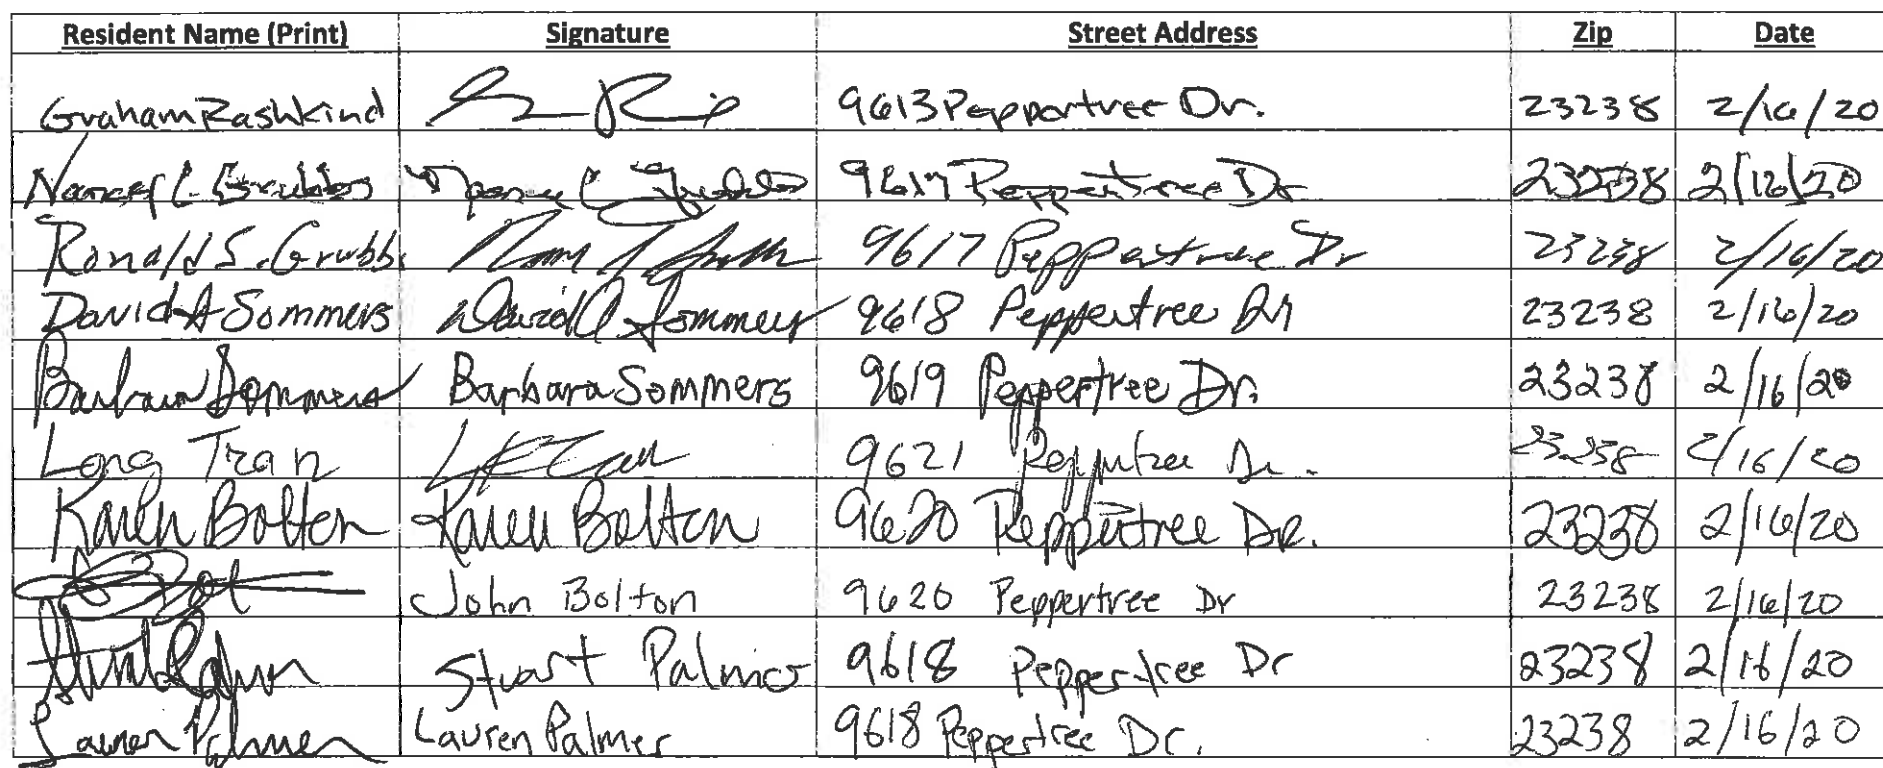 Resident Name (Print) Signature Street Address Zip Date
Graham Rashkind 9613 Peppertree Dr. 23238 2/16/20
Nancy C. Grubbs Nancy C Grubbs 9617 Peppertree Dr 23238 2/16/20
Ronald S. Grubbs 9617 Peppertree Dr 23238 2/16/20
David A Sommers David A Sommers 9618 Peppertree Dr 23238 2/16/20
Barbara Sommers Barbara Sommers 9619 Peppertree Dr. 23238 2/16/20
Long Tran 9621 Peppertree Dr. 23238 2/16/20
Karen Bolton Karen Bolton 9620 Peppertree Dr. 23238 2/16/20
John Bolton 9620 Peppertree Dr 23238 2/16/20
Stuart Palmer Stuart Palmer 9618 Peppertree Dr 23238 2/16/20
Lauren Palmer Lauren Palmer 9618 Peppertree Dr. 23238 2/16/20